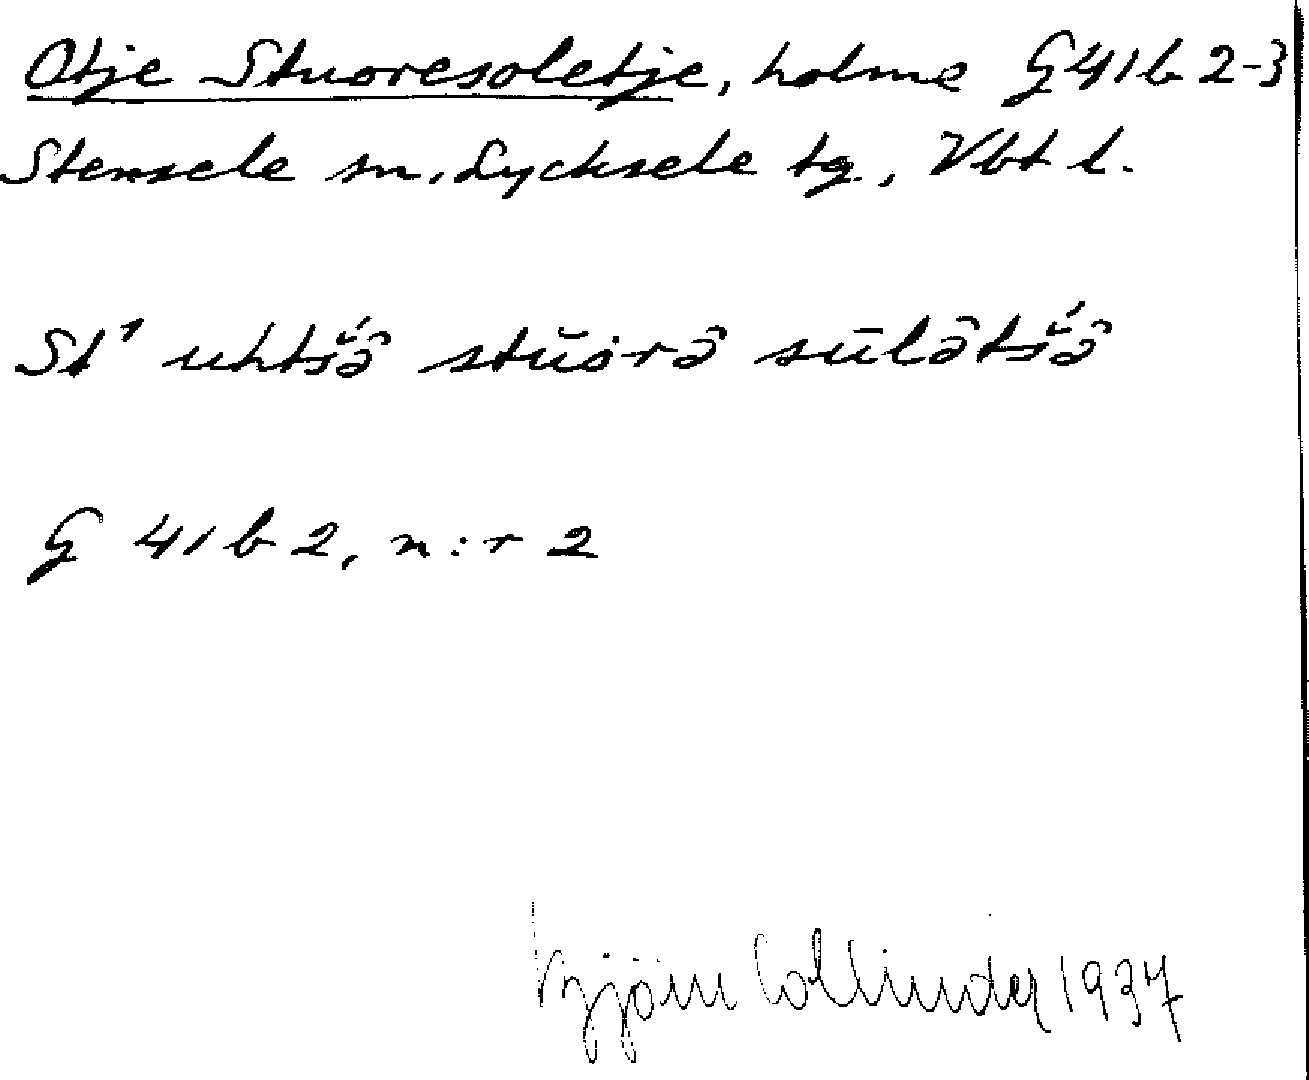 Otje Stuoresoletje, holme G41b 2-3
Stensele sn, Lycksele tg, Vbt l.
St¹ uhtš́ə̂ stŭorə̂ sūlə̂tš́ə̂
G 41 b 2, n:r 2
Björn Collinder 1937